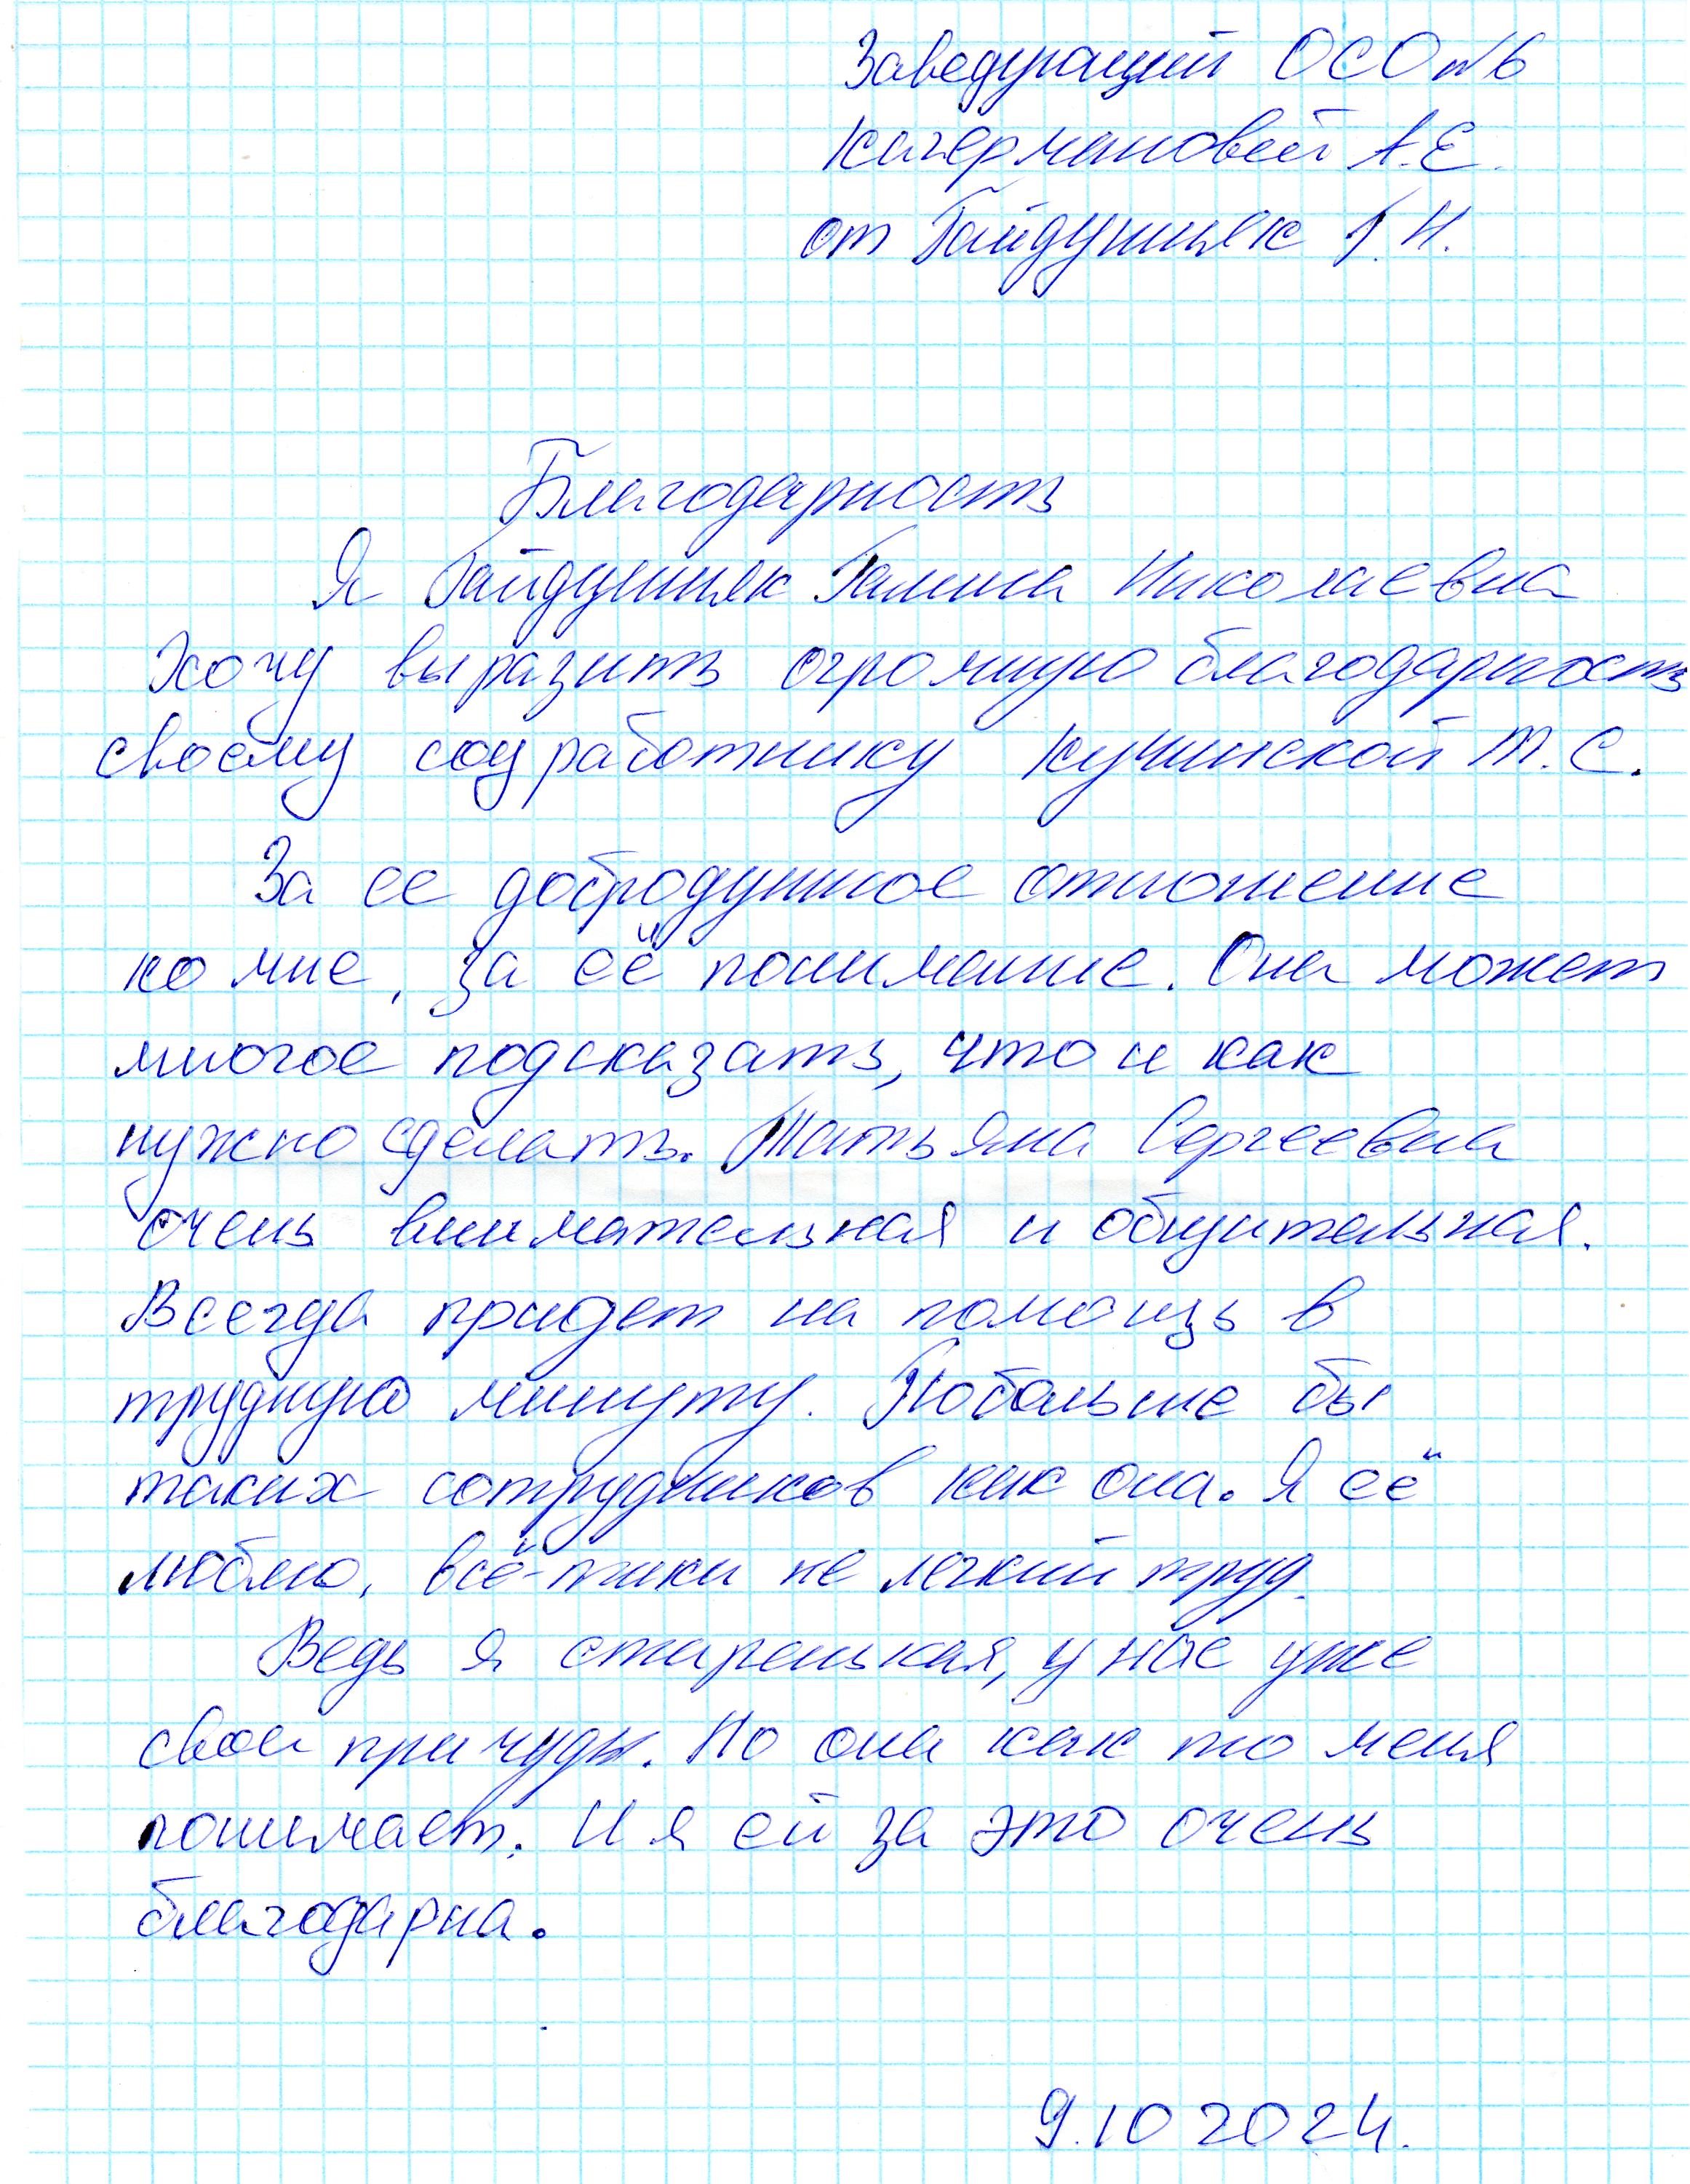 Заведующий ОСО №6
Кагермановой А.Е.
от Гайдушняк Г.Н.
Благодарность
Я Гайдушняк Галина Николаевна
хочу выразить огромную благодарность
своему соц работнику Кучинской Т.С.
За ее добродушное отношение
ко мне, за её понимание. Она может
многое подсказать, что и как
нужно сделать. Татьяна Сергеевна
очень внимательная и общительная.
Всегда придет на помощь в
трудную минуту. Побольше бы
таких сотрудников как она. Я её
люблю, всё-таки не легкий труд.
Ведь я старенькая, у нас уже
свои причуды. Но она как то меня
понимает. И я ей за это очень
благодарна.
9.10 2024.